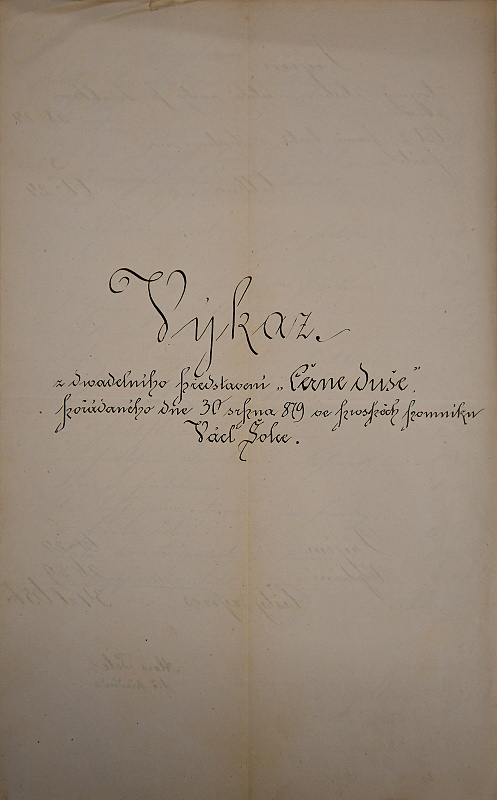 Výkaz.
z divadelního představení „Černe duše“
pořádaného dne 30 srpna 879 ve prospěch pomníku
Václ Šolce.